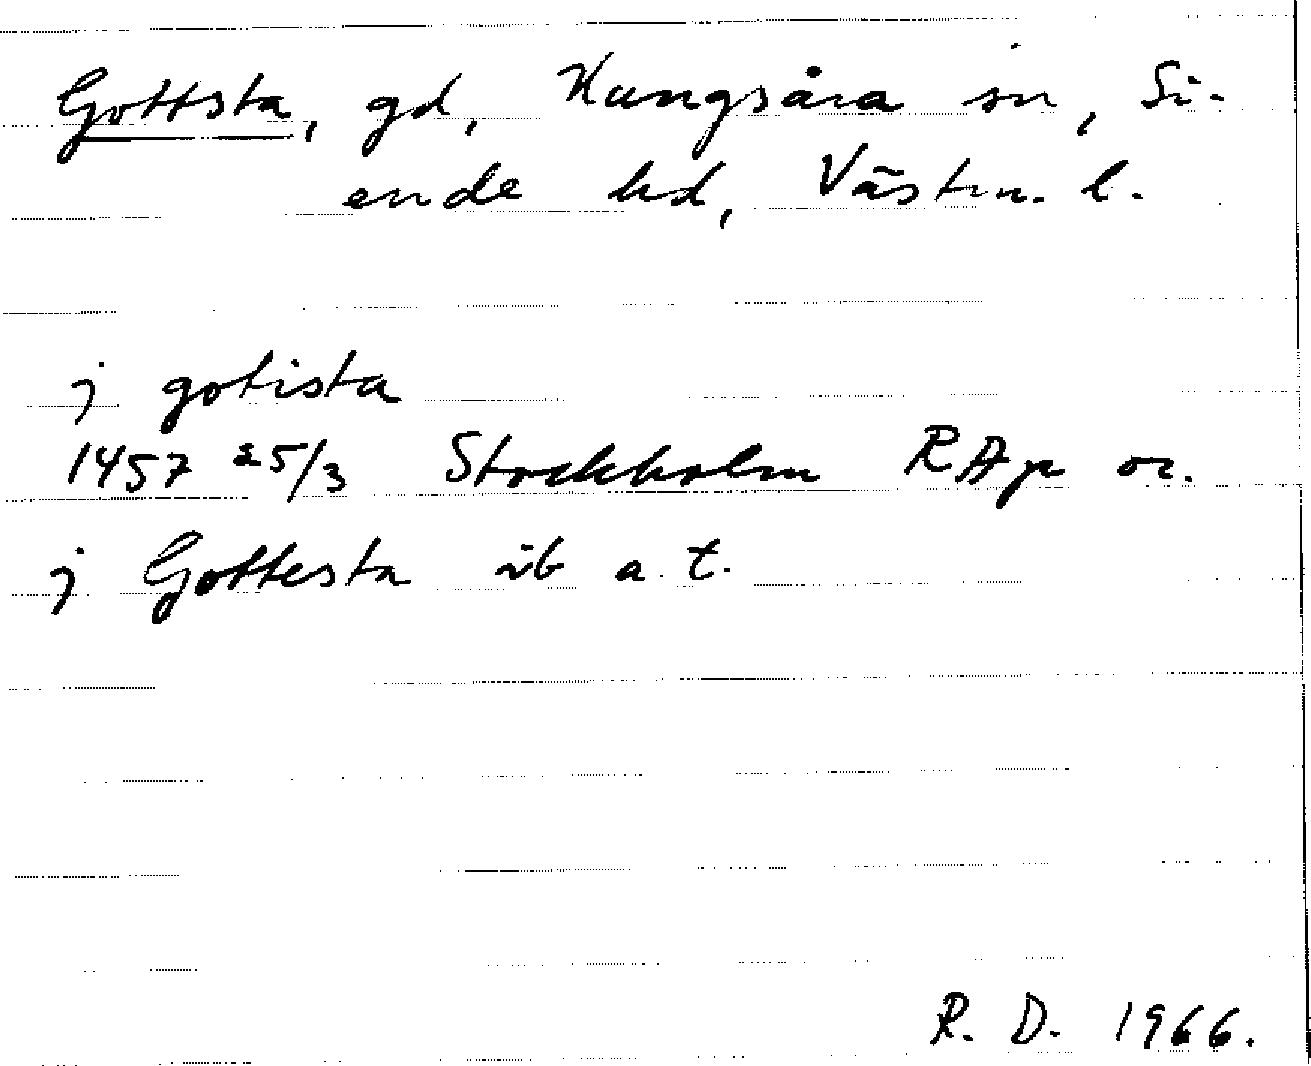 Gottsta, gd, Kungsåra sn, Si-
ende hd, Västm. l.
j gotista
1457 25/3 Stockholm RAp or.
j Gottesta ib a. t.
R. D. 1966.